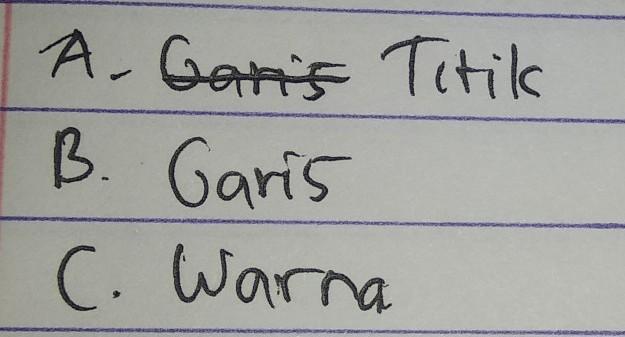 A. Garis Titik
B. Garis
C. Warna